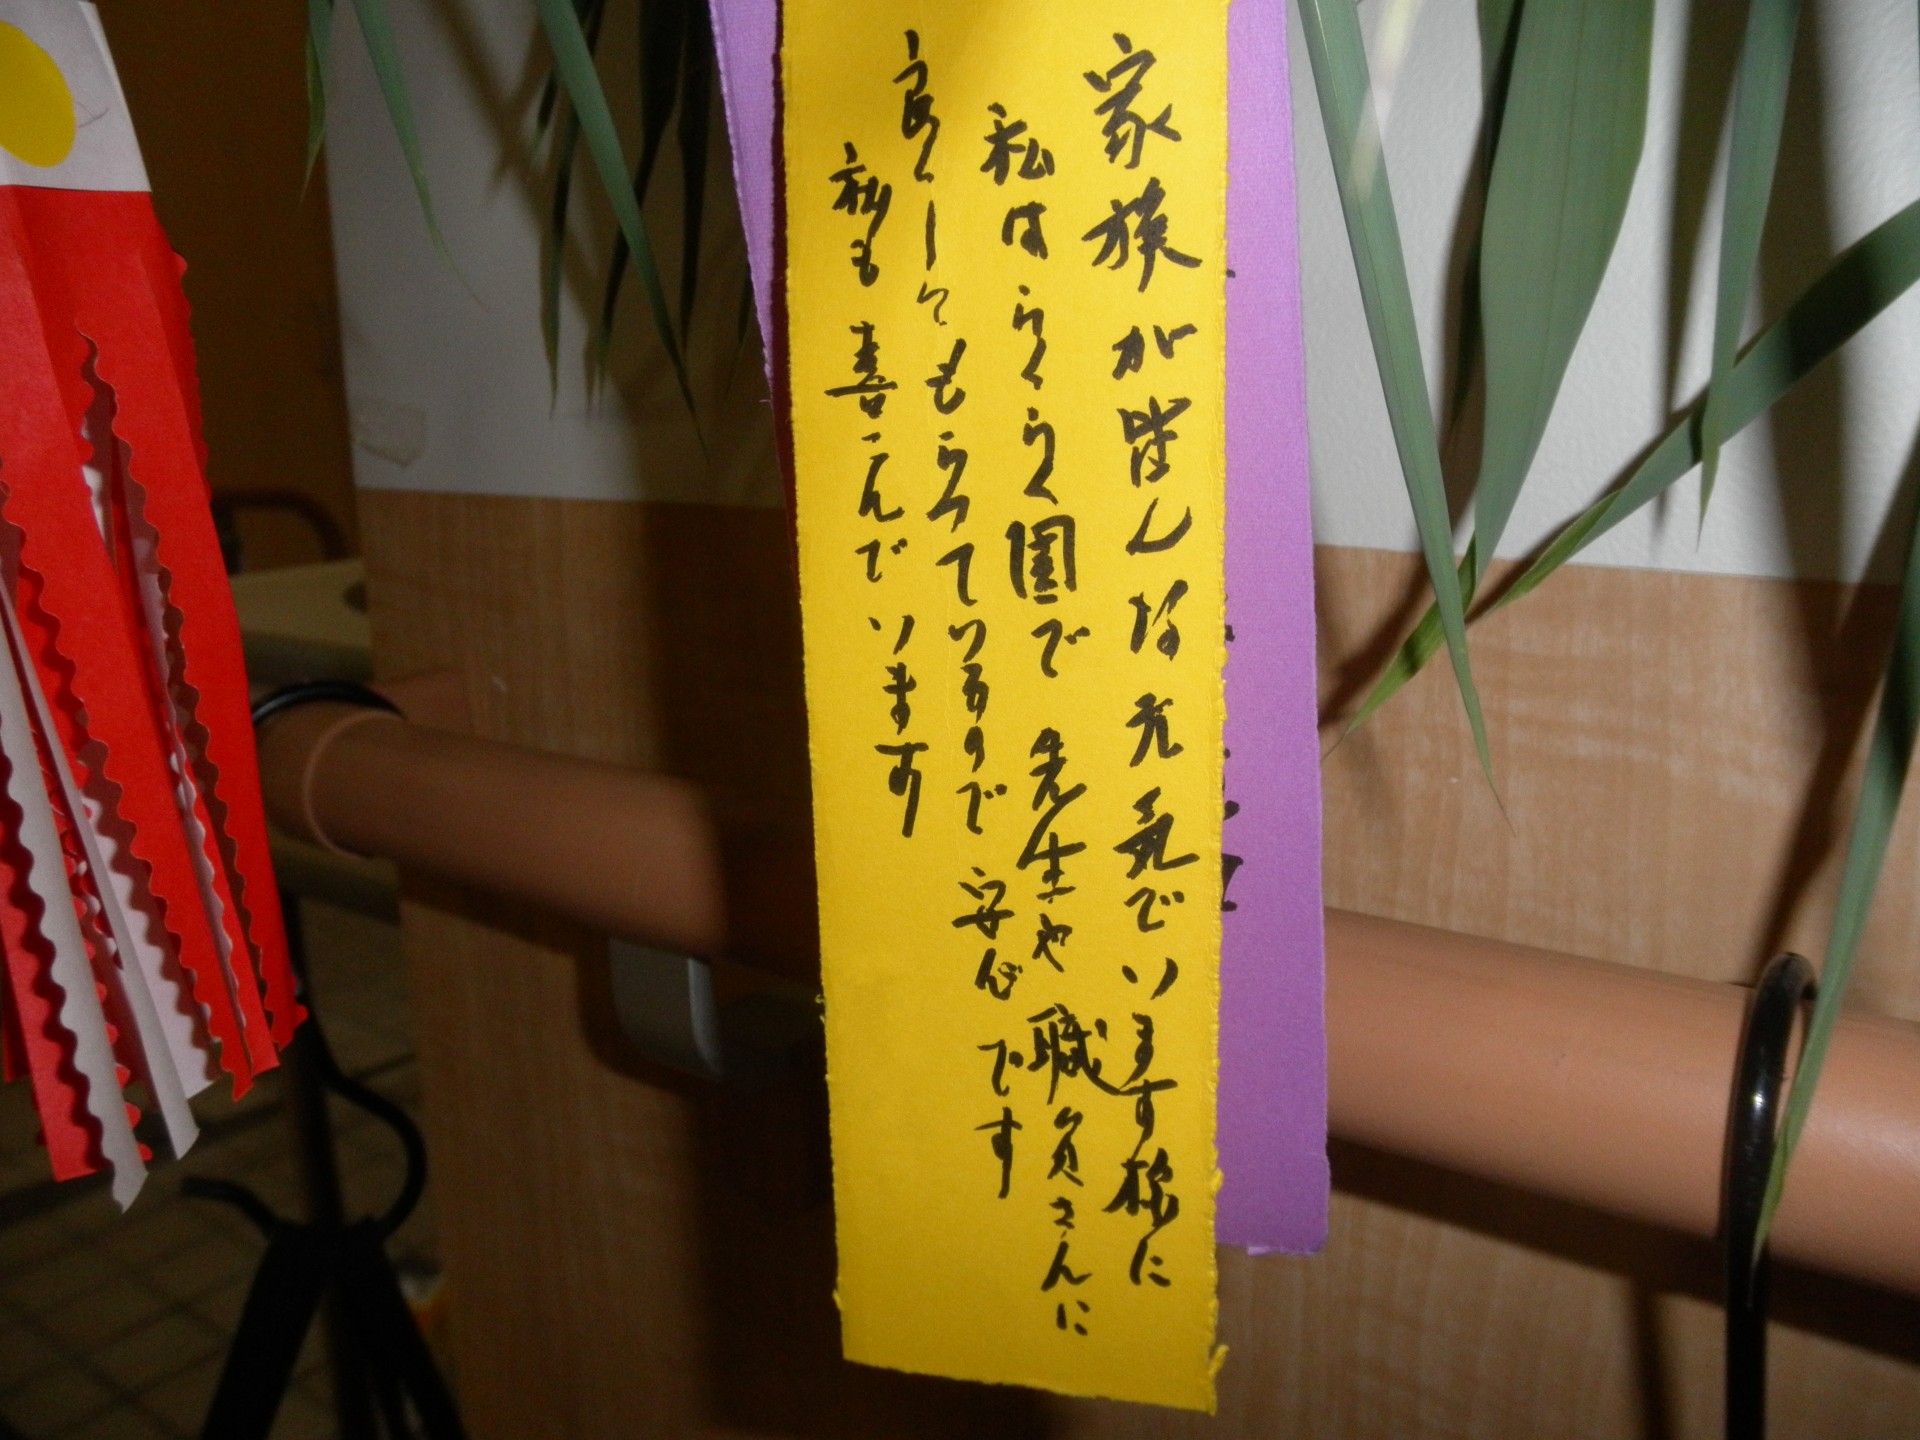 家族が皆んな元気でいます様に
私はらくらく園で先生や職員さんに
良くしてもらっているので安心です
私も喜こんでいます